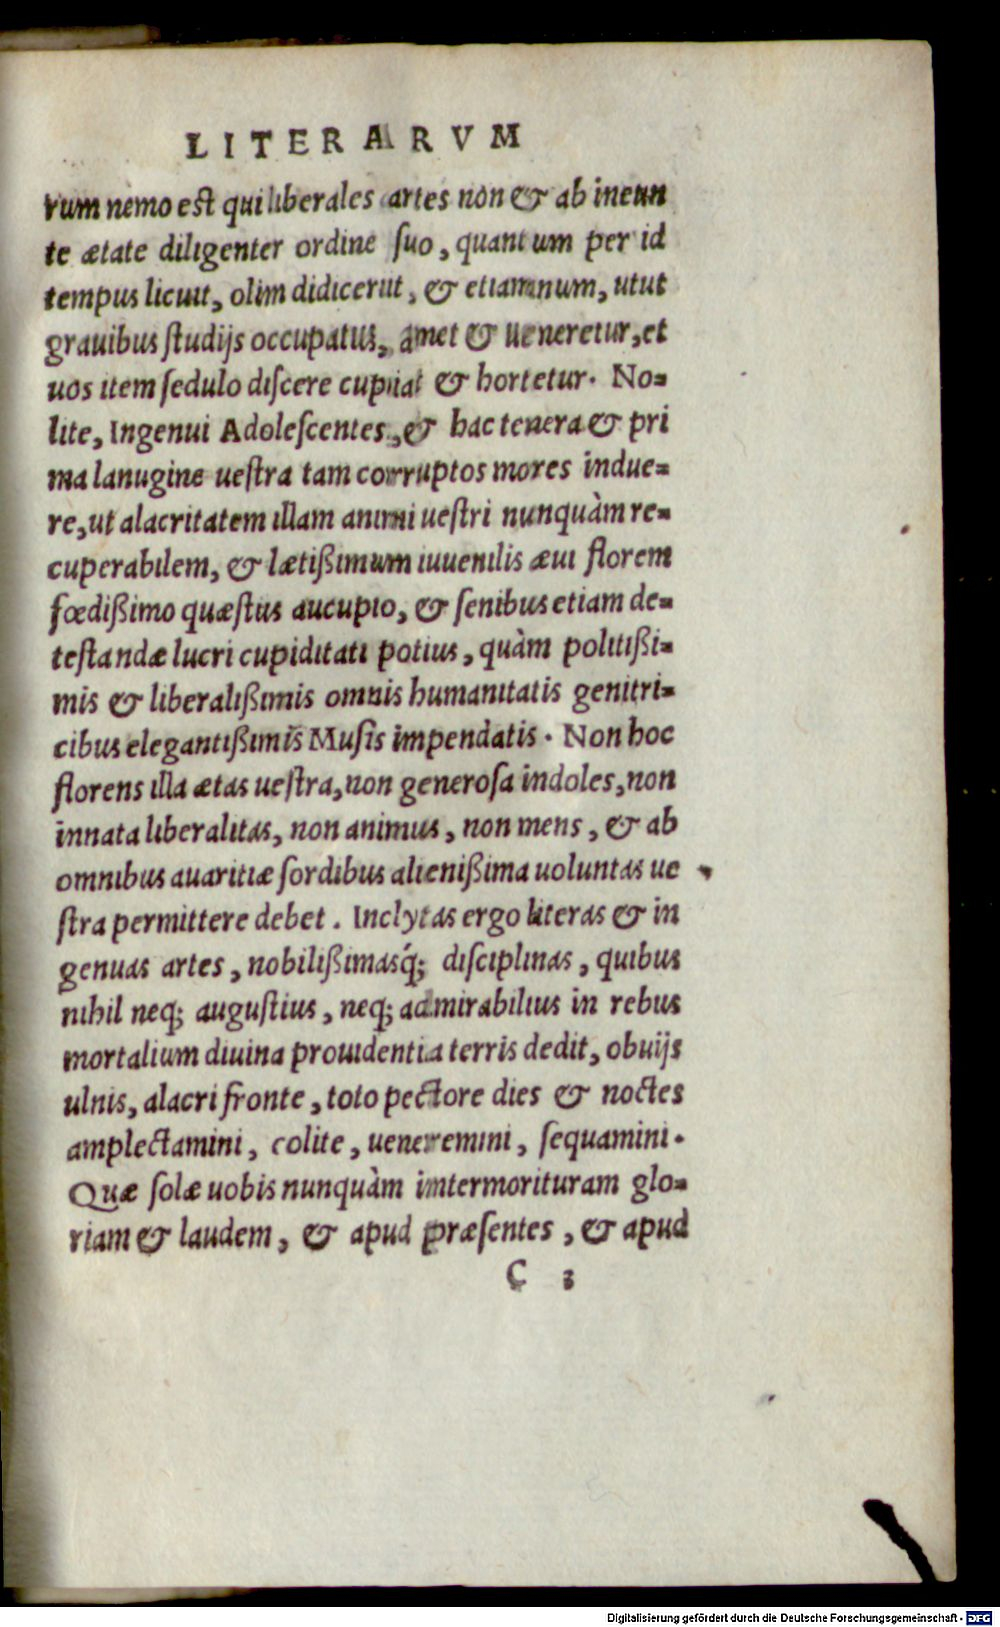 LITERARVM
rum nemo est qui liberales artes non & ab ineun
te ætate diligenter ordine ſuo, quantum per id
tempus licuit, olim didicerit, & etiamnum, utut
grauibus ſtudijs occupatus, amet & ueneretur, et
uos item ſedulo diſcere cupiat & hortetur. No=
lite, Ingenui Adoleſcentes, & hac tenera & pri
ma lanugine ueſtra tam corruptos mores indue=
re, ut alacritatem illam animi ueſtri nunquàm re=
cuperabilem, & lætißimum iuuenilis æui florem
fœdißimo quæſtus aucupio, & ſenibus etiam de=
teſtandæ lucri cupiditati potius, quàm politißi=
mis & liberalißimis omnis humanitatis genitri=
cibus elegantißimis Muſis impendatis. Non hoc
florens illa ætas ueſtra, non generoſa indoles, non
innata liberalitas, non animus, non mens, & ab
omnibus auaritiæ ſordibus alienißima uoluntas ue
ſtra permittere debet. Inclytas ergo literas & in
genuas artes, nobilißimasq́; diſciplinas, quibus
nihil neq; auguſtius, neq; admirabilius in rebus
mortalium diuina prouidentia terris dedit, obuijs
ulnis, alacri fronte, toto pectore dies & noctes
amplectamini, colite, ueneremini, ſequamini.
Quæ ſolæ uobis nunquàm intermorituram glo=
riam & laudem, & apud præſentes, & apud
C 3
Digitalisierung gefördert durch die Deutsche Forschungsgemeinschaft - DFG